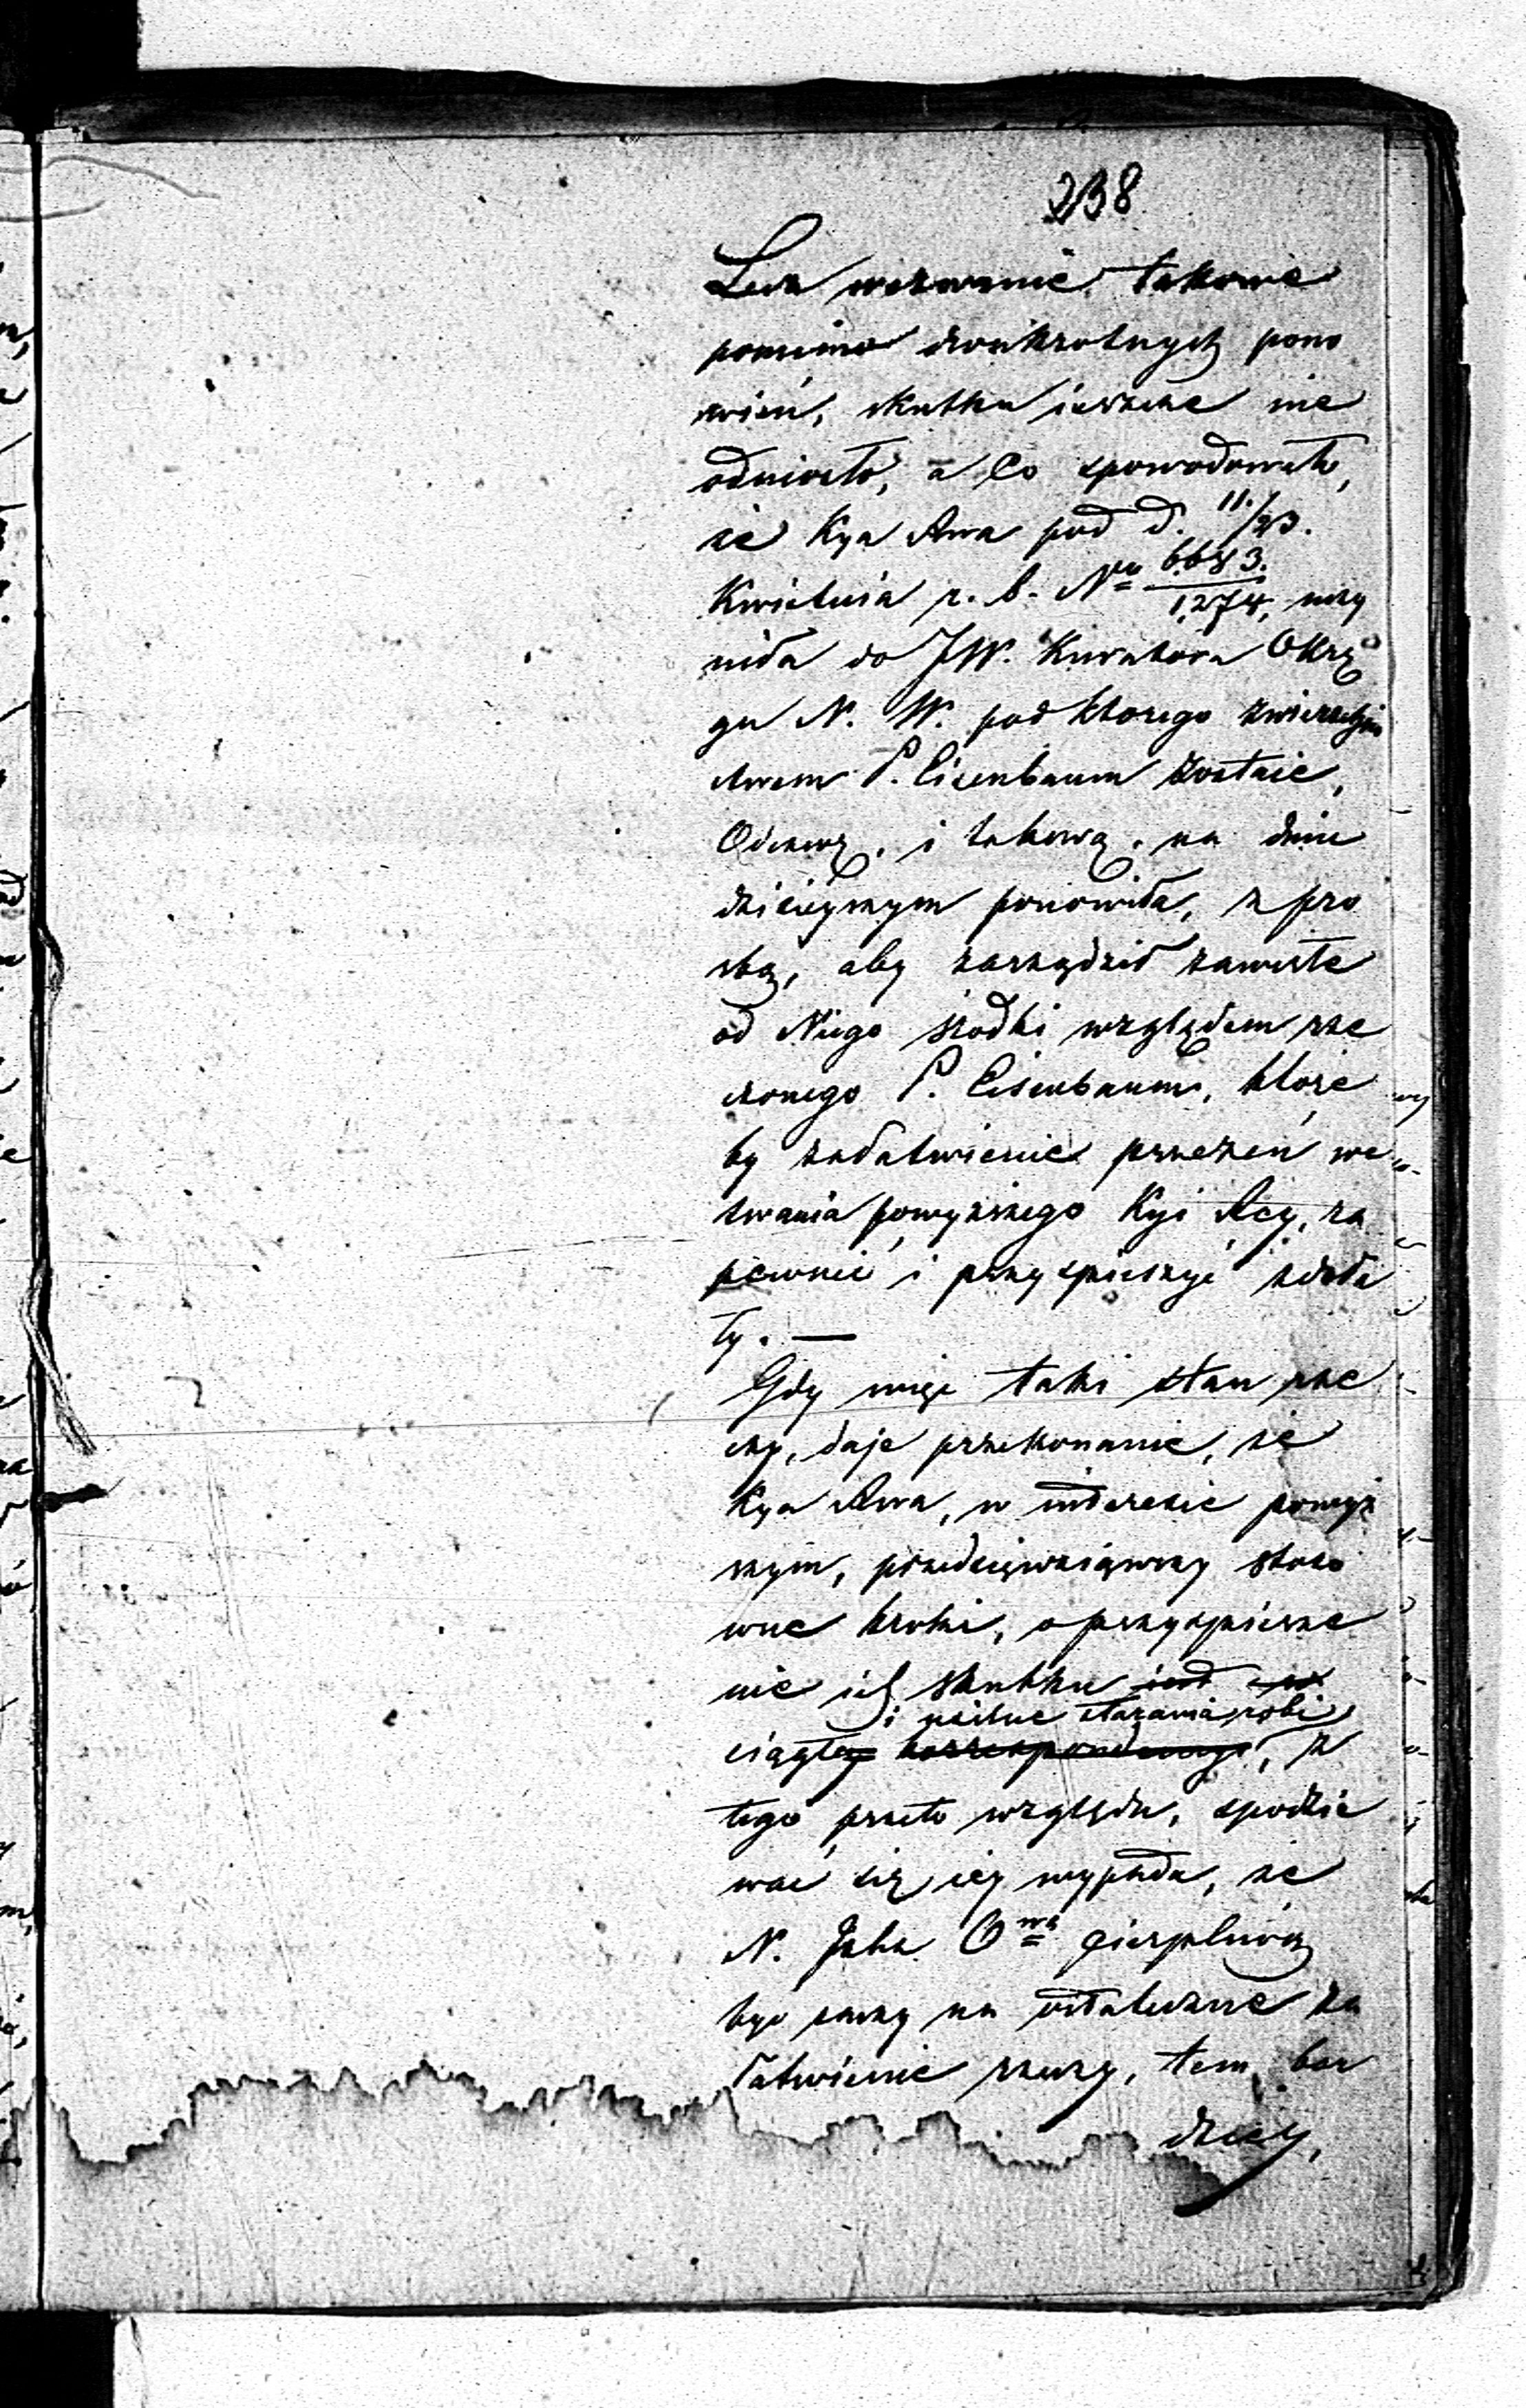 238
Lecz wezwanie takowe
pomimo dwukrotnych pono
wień, skutku ieszcze nie
odniosło, a co spowodowało,
że Kya Rwa pod d. 11./23.
Kwietnia r. b. No 6683./1,274, uczy
niła do JW. Kuratora Okrę
gu N. W. pod którego zwierzchni
ctwem P. Eisenbaum zostaie,
Odezwę, i takową na dniu
dzisieyszym ponowiła, z pro
sbą, aby zarządził zawisłe
od Niego środki względem rze
czonego P. Eisenbaum, które
by załatwienie przezeń we
zwania powyższego Kyi Rcy, za
pewnić i przyspieszyć zdoła
ły. —
Gdy więc taki stan rze
czy, daje przekonanie, że
Kya Rwa, w interesie powyż
szym, przedsięwziąwszy stoso
wne kroki, o przyspiesze
nie ich skutku iest w
i usilne starania robi
ciągłey korrespondencyi, z
tego przeto względu, spodzie
wać się iey wypada, że
N. Izba Owa cierpliwą
być raczy na ostateczne za
łatwienie rzeczy, tem bar
dziey,